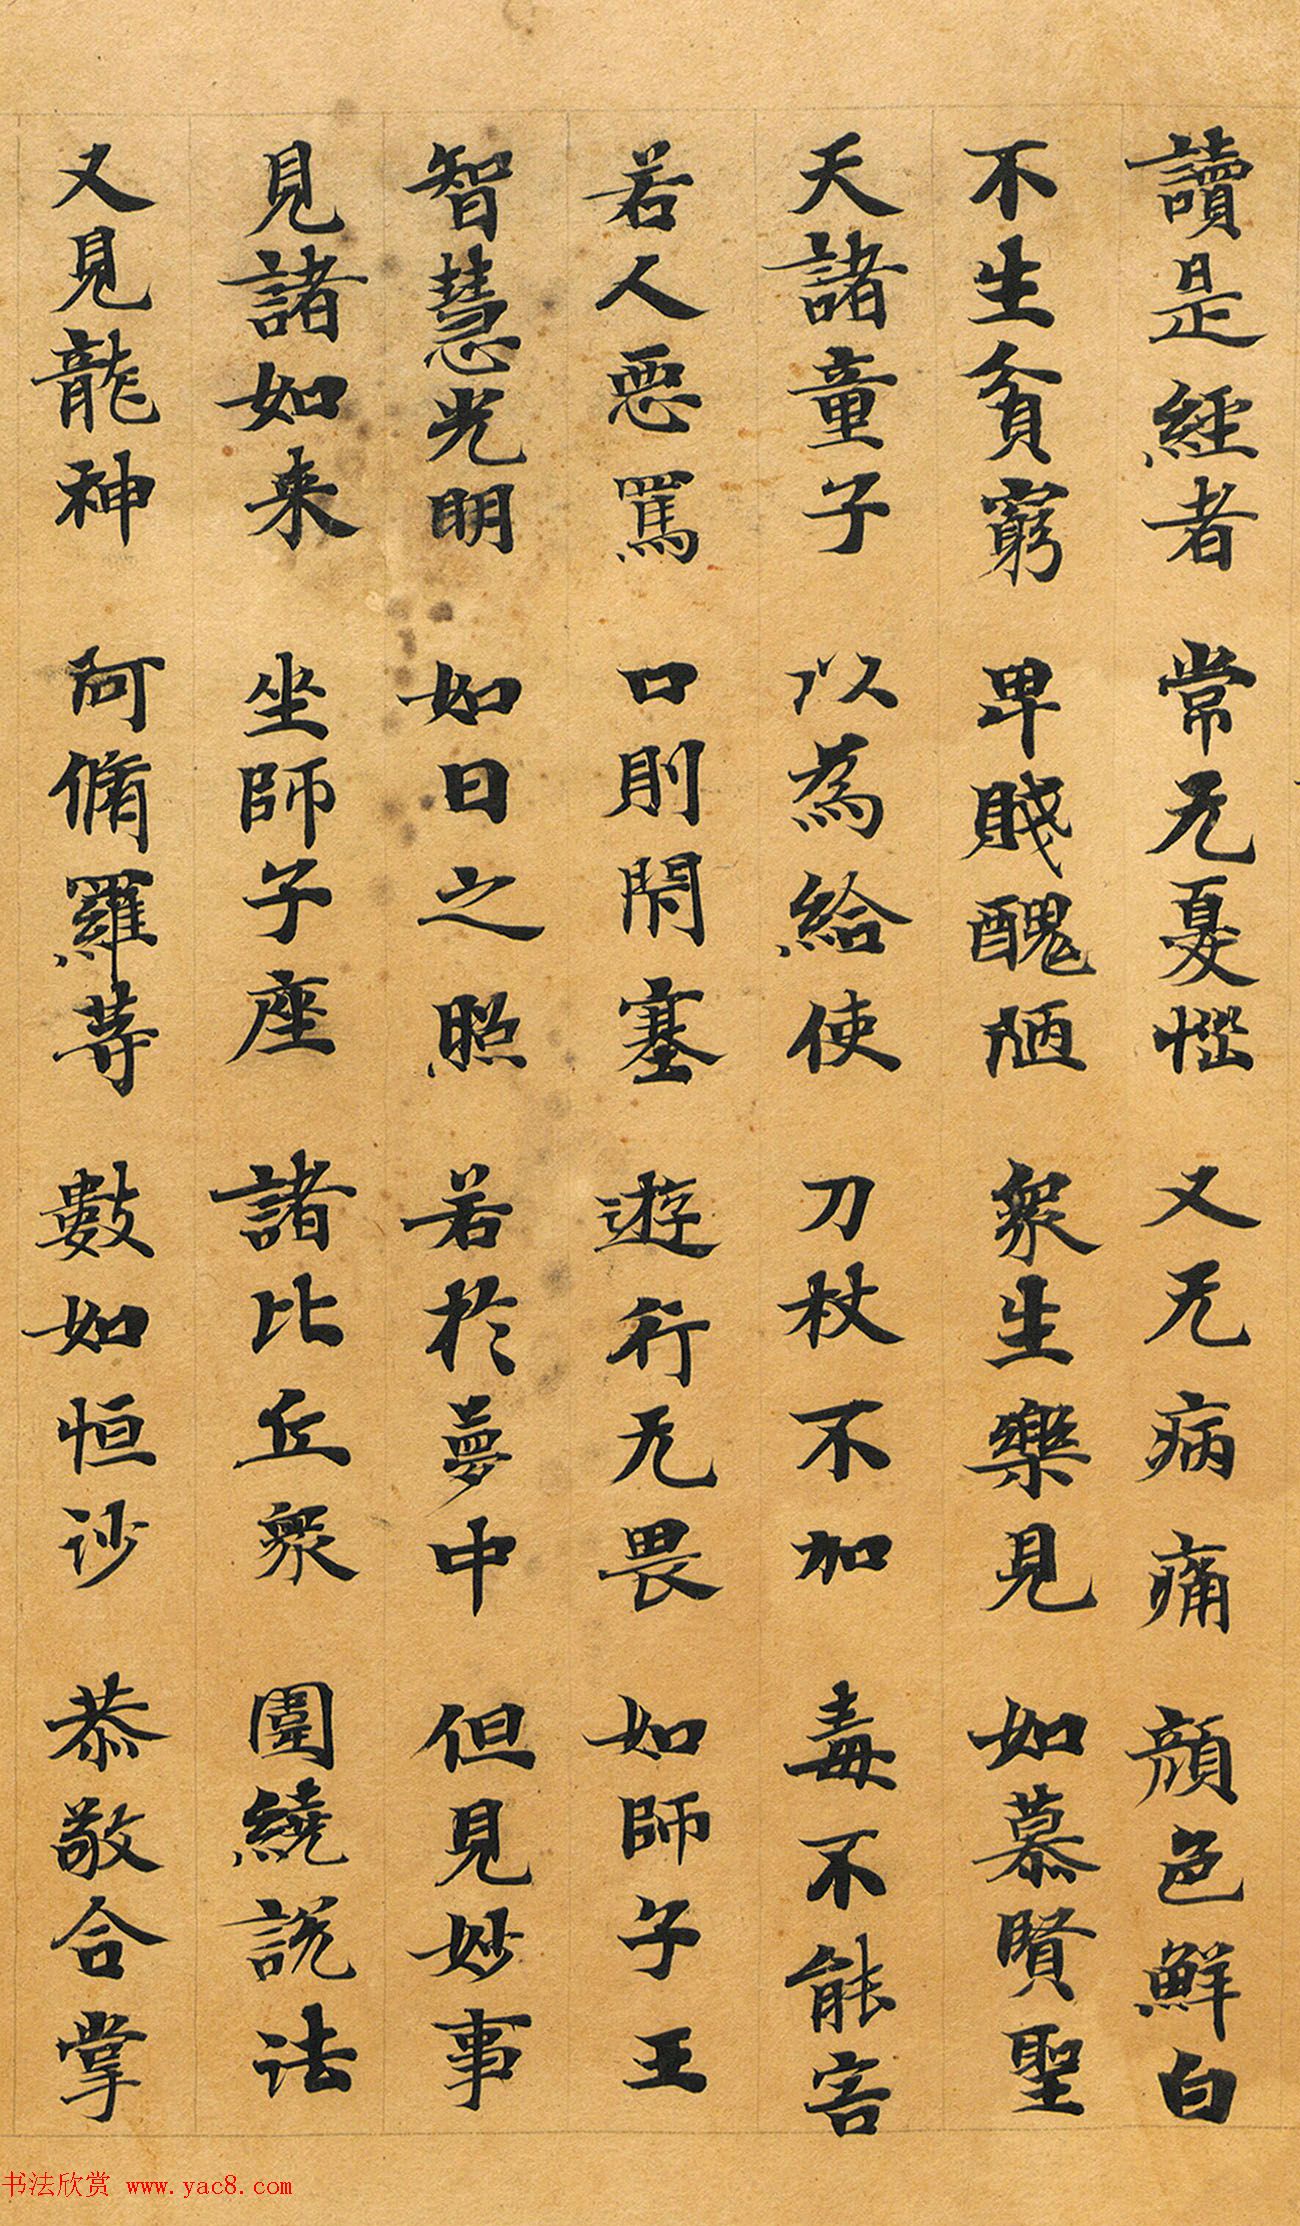 讀是經者 常无憂惱 又无病痛 顏色鮮白
不生貧窮 卑賤醜陋 衆生樂見 如慕賢聖
天諸童子 以為給使 刀杖不加 毒不能害
若人惡罵 口則閇塞 遊行无畏 如師子王
智慧光明 如日之照 若於夢中 但見妙事
見諸如来 坐師子座 諸比丘衆 圍繞說法
又見龍神 阿脩羅等 數如恒沙 恭敬合掌
书法欣赏 www.yac8.com